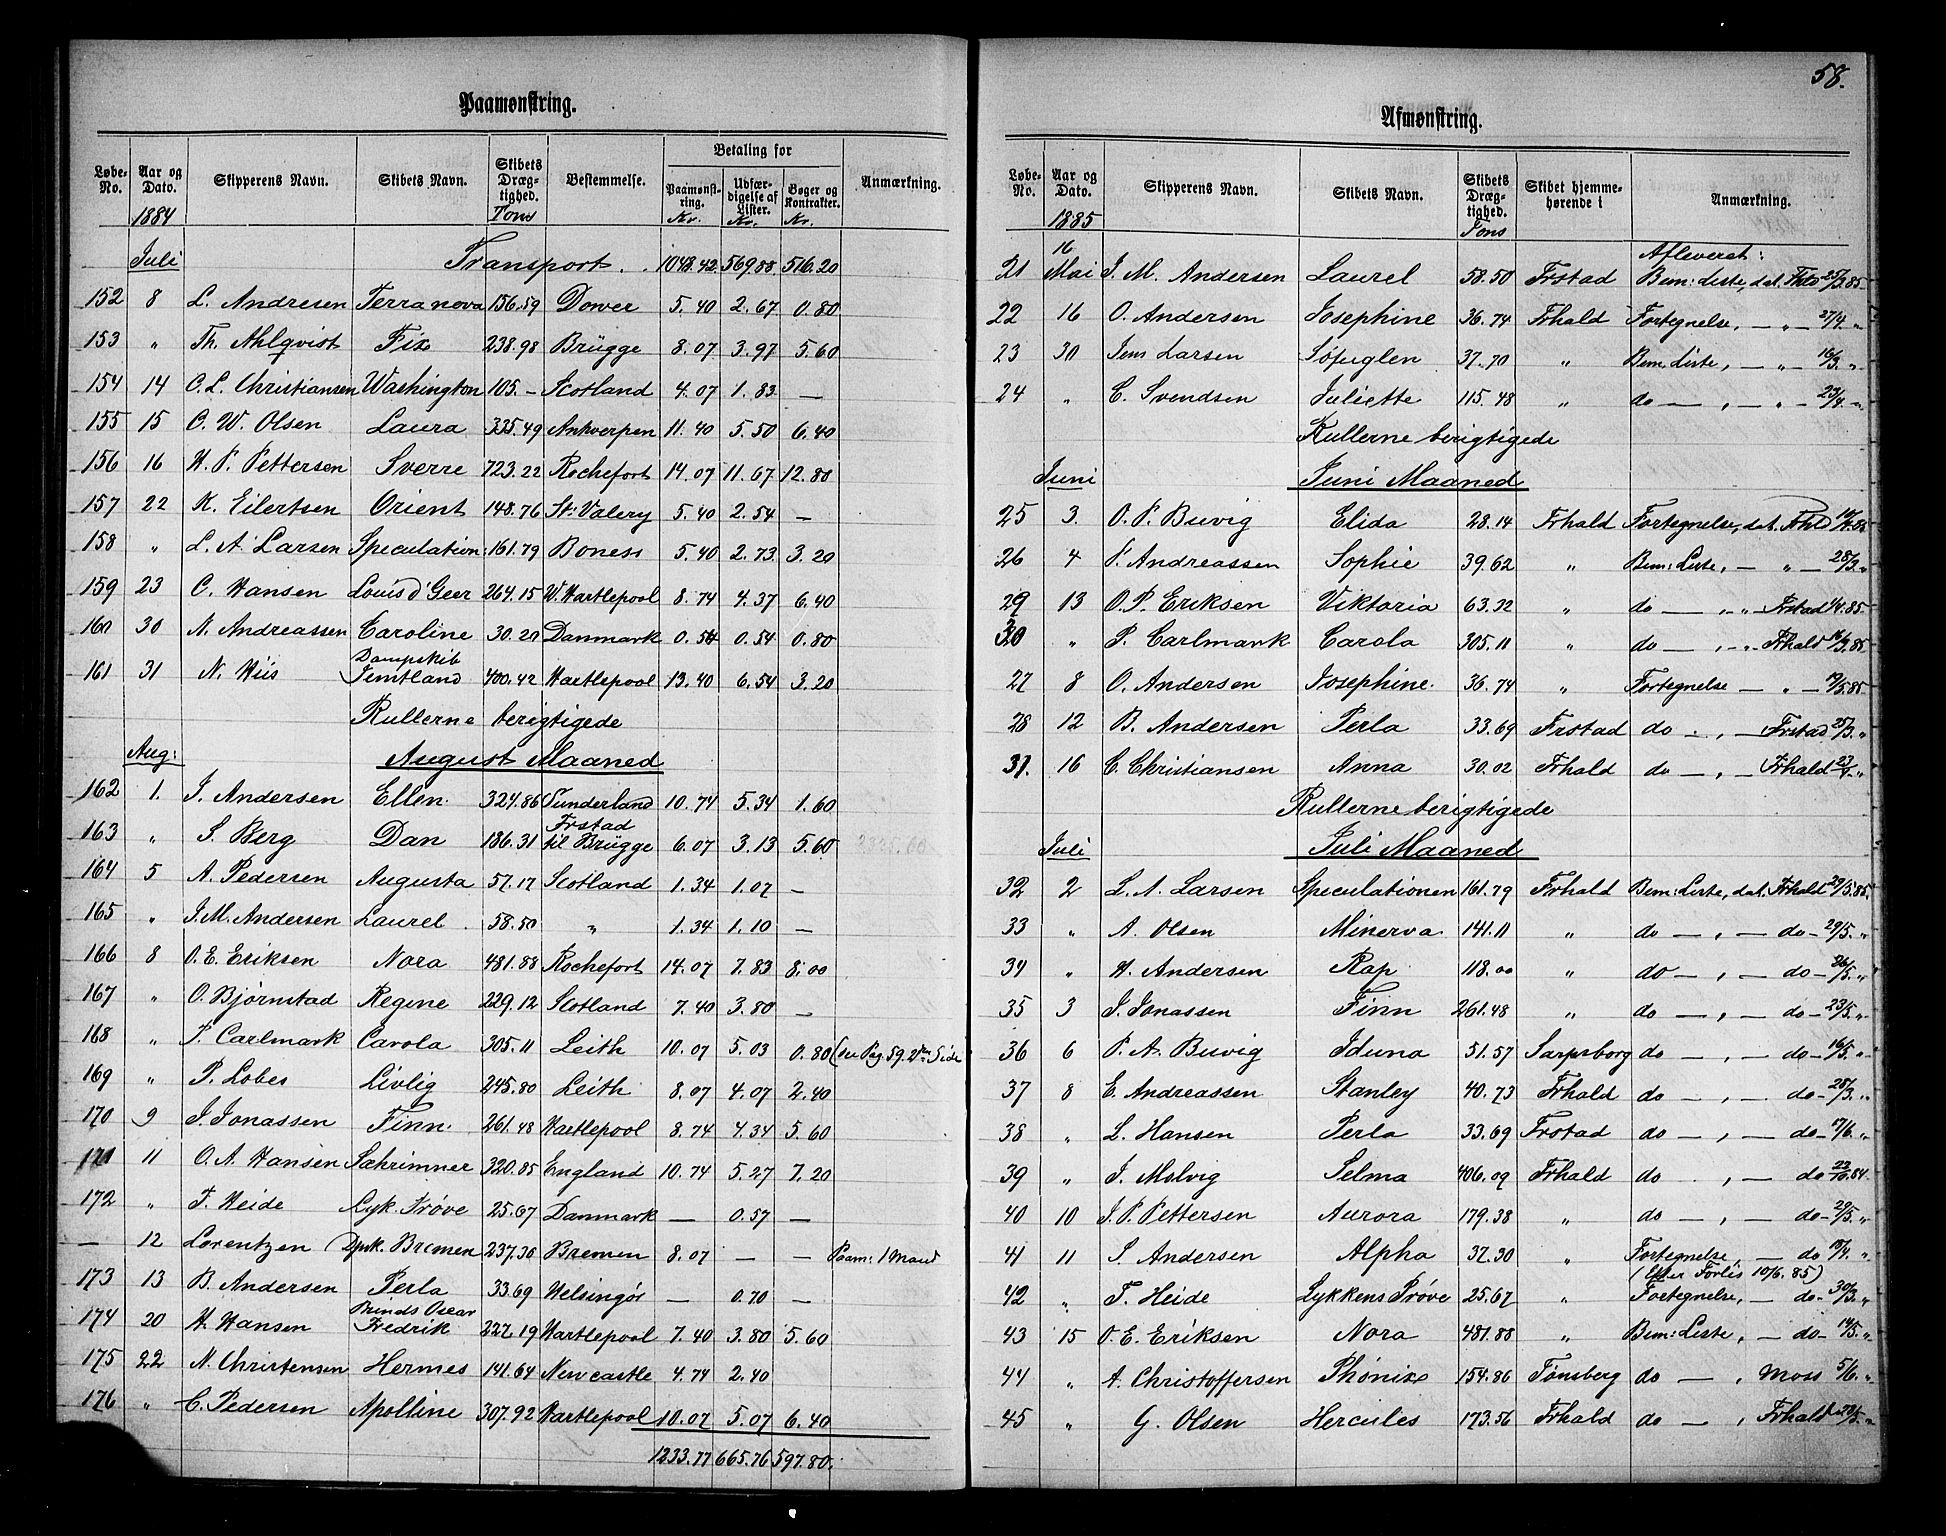 Paamønstring.
Løbe-No. Aar og Dato. Skipperens Navn. Skibets Navn. Skibets Dræg-tighed. Bestemmelse. Betaling for Paamønst-ring. Udfær-digelse af Lister. Bøger og Kontrakter. Anmærkning.
1884 Tons Kr. Kr. Kr.
Juli Transport . . 1048.42 569.88 516.20
152 8 L. Andresen Terranova 156.59 Dower 5.40 2.67 0.80
153 " Th. Ahlqvist Fix 238.98 Brügge 8.07 3.97 5.60
154 14 C. L. Christiansen Washington 105.- Scotland 4.07 1.83 —
155 15 C. W. Olsen Laura 335.49 Antverpen 11.40 5.50 6.40
156 16 H. P. Pettersen Sverre 723.22 Rochefort 14.07 11.67 12.80
157 22 K. Eilertsen Orient 148.76 St. Valery 5.40 2.54 —
158 " L. A. Larsen Speculation: 161.79 Boness 5.40 2.73 3.20
159 23 C. Hansen Louis d'Geer 264.15 W. Hartlepool 8.74 4.37 6.40
160 30 N. Andreassen Caroline 30.20 Danmark 0.54 0.54 0.80
161 31 N. Hiis Dampskib Jemtland 400.42 Hartlepool 13.40 6.54 3.20
Rullerne berigtigede
Aug: August Maaned
162 1. J. Andersen Ellen 324.86 Sunderland 10.74 5.34 1.60
163 " S. Berg Dan 186.31 Frstad til Brügge 6.07 3.13 5.60
164 5 A. Pedersen Augusta 57.17 Scotland 1.34 1.07 —
165 " J. M. Andersen Laurel . 58.50 " 1.34 1.10 —
166 8 O. E. Eriksen Nora 481.88 Rochefort 14.07 7.83 8.00
167 " O. Bjørnstad Regine 229.12 Scotland 7.40 3.80 —
168 " P. Carlmark Carola 305.11 Leith 10.07 5.03 0.80 (see Pag 59. 2den Side
169 " P. Lobes Livlig 245.80 Leith 8.07 4.07 2.40
170 9 J. Jonassen Finn 261.48 Hartlepool 8.74 4.34 5.60
171 11 O. A. Hansen Sæhrimner 320.85 England 10.74 5.27 7.20
172 " T. Heide Lyk. Prøve 25.67 Danmark — 0.57 —
— 12 Lorentzen Dpsk. Bremen 237.36 Bremen 8.07 — — Paam: 1 Mand
173 13 B. Andersen Perla 33.69 Helsingör — 0.70 —
174 20 H. Hansen Prinds Oscar Fredrik 227.19 Hartlepool 7.40 3.80 5.60
175 22 N. Christensen Hermes 141.64 Newcastle 4.74 2.40
176 " C. Pedersen Apolline 307.92 Hartlepool 10.07 5.07 6.40
1233.77 665.76 597.80.
58.
Afmønstring.
Løbe-No. Aar og Dato. Skipperens Navn. Skibets Navn. Skibets Dræg-tighed. Skibet hjemme-hørende i Anmærkning.
1885 Tons
Afleveret:
21 16 Mai J. M. Andersen Laurel 58.50 Frstad Bem: Liste, dat. Fhld 25/3.85
22 16 O. Andersen Josephine 36.74 Frhald Fortegnelse, — " — 27/4 "
23 30 Jens Larsen Söfuglen 37.70 " Bem. Liste, — " — 16/3. "
24 " C. Svendsen Juliette 115.48 " do — , — " — 23/4 "
Rullerne berigtigede
Juni Juni Maaned
25 3. O. P. Buvig Elida 28.14 Frhald Fortegnelse, dat. Frhld
26 4 P. Andreassen Sophie 39.62 " Bem: Liste, — " — 28/3. "
29 13 O. P. Eriksen Viktoria 63.32 " do — , — " Frstad 1/4.85
30 " P. Carlmark Carola 305.11 " do — , — " Frhald 16/3.85
27 8 O. Andersen Josephine. 36.74 " Fortegnelse — " — 19/5.85
28 12 B. Andersen Perla 33.69 Frstad do . , — Frstad 25/3. "
31. 16 C. Christiansen Anna 30.02 Frhald do — , — Frhald 23/4. "
Rullerne berigtigede
Juli Juli Maaned
32 2 L. A. Larsen Speculationen 161.79 Frhald Bem: Liste, dat. Frhald 29/5.85.
33 " A. Olsen Minerva 141.11 " do — , — do - 29/5. "
34 " H. Andersen Rap 118.00 " do — , — do - 26/5. "
35 3 J. Jonassen Finn 261.48 " do — , — do - 23/5. "
36 6 P. A. Buvig Iduna 51.57 Sarpsborg do — , — do - 16/5. "
37 8 E. Andreassen Stanley 40.73 Frhald do — , — do - 28/3. "
38 " L. Hansen Perla 33.69 Frstad do — , — do - 17/6. "
39 " J. Molvig Selma 406.09 Frhald do . , — do 22/10.84.
40 10 J. P. Pettersen Aurora 179.38 " do — , — do - 29/5. "
41 11 S. Andersen Alpha 37.30 " Fortegnelse, — do 18/4. "
(Efter Forlis 10/6.85)
42 " T. Heide Lykkens Prøve 25.67 " Fortegnelse, — do - 30/3. "
43 15 O. E. Eriksen Nora 481.88 " Bem: Liste, — do - 14/5. "
44 " A. Christoffersen Phönix 154.86 Tønsberg do — , Moss 5/6. "
45 " G. Olsen Hercules 173.56 Frhald do — , Frhald 22/5. "